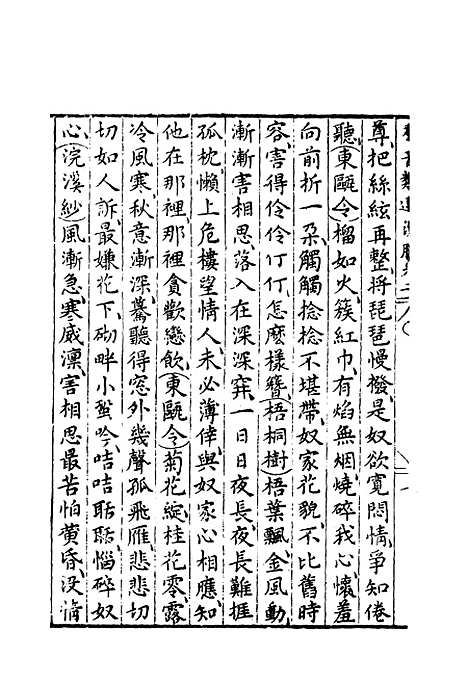 尊把絲絃再整將琵琶慢撥是奴欲寬悶情爭知倦
聽東甌令榴如火簇紅巾有焰無烟燒碎我心懷羞
向前折一朶觸觸捻捻不堪帶奴家花貌不比舊時
容害得伶伶仃仃怎麽樣簪梧桐樹梧葉飄金風動
漸漸害相思落入在深深穽一日日夜長夜長難捱
孤枕懶上危樓望情人未必薄倖與奴家心相應知
他在那裡那裡貪歡戀飲東甌令菊花綻桂花零露
冷風寒秋意漸深驀聽得窓外幾聲孤飛雁悲悲切
切如人訴最嫌花下砌畔小蛩吟咭咭聒聒惱碎奴
心浣溪紗風漸急寒威凛害相思最苦怕黄昏没情